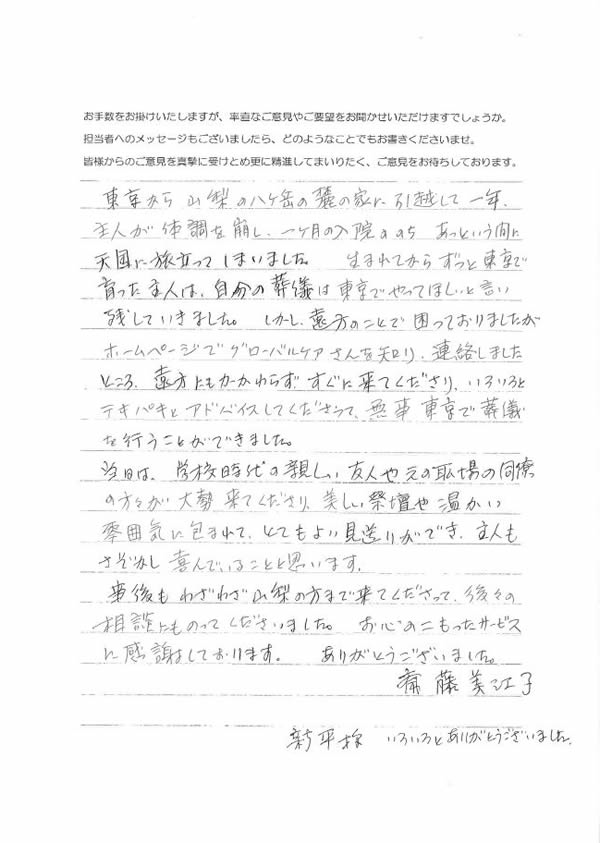 お手数をお掛けいたしますが、率直なご意見やご要望をお聞かせいただけますでしょうか。
担当者へのメッセージもございましたら、どのようなことでもお書きくださいませ。
皆様からのご意見を真摯に受けとめ更に精進してまいりたく、ご意見をお待ちしております。
東京から山梨の八ヶ岳の麓の家に引越して一年、
主人が体調を崩し、一ヶ月の入院ののち あっという間に
天国に旅立ってしまいました。 生まれてからずっと東京で
育った主人は、自分の葬儀は東京でやってほしいと言い
残していきました。しかし、遠方のことで困っておりましたが
ホームページでグローバルケアさんを知り、連絡しました
ところ、遠方にもかかわらず、すぐに来てくださり、いろいろと
テキパキとアドバイスしてくださって、無事東京で葬儀
を行うことができました。
当日は、学校時代の親しい友人や元の職場の同僚
の方々が大勢来てくださり、美しい祭壇や温かい
雰囲気に包まれて、とてもよい見送りができ、主人も
さぞかし喜んでいることと思います。
事後もわざわざ山梨の方まで来てくださって、後々の
相談にものってくださいました。お心のこもったサービス
に感謝しております。 ありがとうございました。
斎藤美江子
新平様 いろいろとありがとうございました。